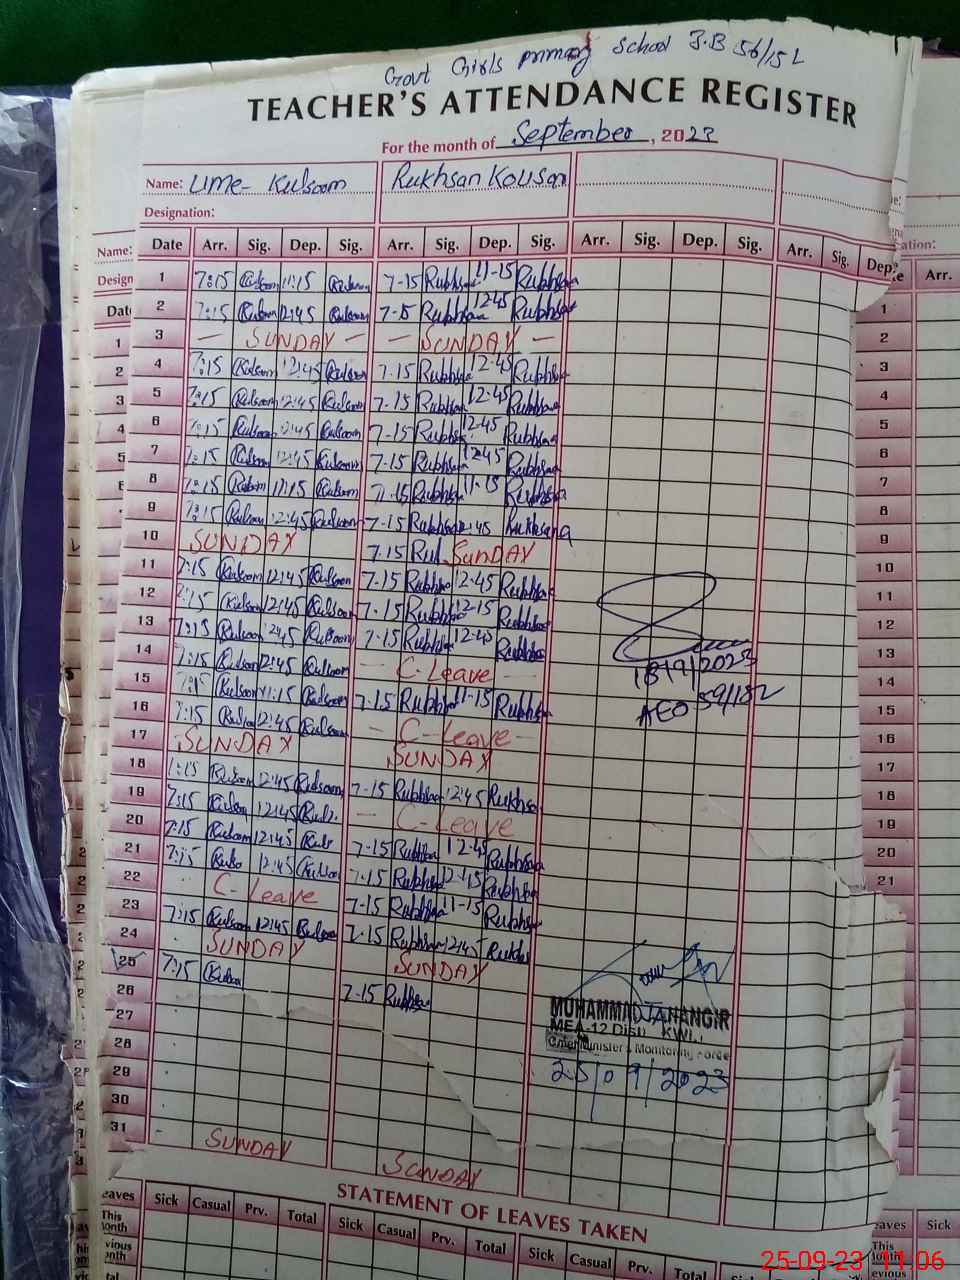 Govt Girls primary School 3.B 56/15 L
TEACHER'S ATTENDANCE REGISTER
For the month of September, 2023
Name: Ume- Kulsoom Rukhsan Kousar
Designation:
Date Arr. Sig. Dep. Sig. Arr. Sig. Dep. Sig. Arr. Sig. Dep. Sig. Arr. Sig. Dep.
1 7:15 Kulsoom 11:15 Kulsoom 7-15 Rukhsana 11-15 Rukhsana
2 7:15 Kulsoom 12:45 Kulsoom 7-15 Rukhsana 12-45 Rukhsana
3 — SUNDAY — — SUNDAY —
4 7:15 Kulsoom 12:45 Kulsoom 7-15 Rukhsana 12-45 Rukhsana
5 7:15 Kulsoom 12:45 Kulsoom 7-15 Rukhsana 12-45 Rukhsana
6 7:15 Kulsoom 12:45 Kulsoom 7-15 Rukhsana 12-45 Rukhsana
7 7:15 Kulsoom 12:45 Kulsoom 7-15 Rukhsana 12-45 Rukhsana
8 7:15 Kulsoom 11:15 Kulsoom 7-15 Rukhsana 11-15 Rukhsana
9 7:15 Kulsoom 12:45 Kulsoom 7-15 Rukhsana 12-45 Rukhsana
10 SUNDAY 7-15 Ruk SUNDAY
11 7:15 Kulsoom 12:45 Kulsoom 7-15 Rukhsana 12-45 Rukhsana
12 7:15 Kulsoom 12:45 Kulsoom 7-15 Rukhsana 12-15 Rukhsana
13 7:15 Kulsoom 12:45 Kulsoom 7-15 Rukhsana 12-45 Rukhsana
14 7:15 Kulsoom 12:45 Kulsoom — C-Leave —
18/9/2023
15 7:15 Kulsoom 11:15 Kulsoom 7-15 Rukhsana 11-15 Rukhsana
AEO 59/15L
16 7:15 Kulsoom 12:45 Kulsoom — C-Leave —
17 SUNDAY SUNDAY
18 7:15 Kulsoom 12:45 Kulsoom 7-15 Rukhsana 12:45 Rukhsana
19 7:15 Kulsoom 12:45 — C-Leave
20 7:15 Kulsoom 12:45 7-15 Rukhsana 12-45 Rukhsana
21 7:15 12:45 7-15 Rukhsana 12-45 Rukhsana
22 C-Leave 7-15 Rukhsana 11-15 Rukhsana
23 7:15 Kulsoom 12:45 Kulsoom 7-15 Rukhsana 12:45
24 SUNDAY SUNDAY
25 7:15 7-15 Rukhsana
26
27
28
29
30
31 SUNDAY SUNDAY
MUHAMMAD JAHANGIR
MEA-12 Distt. KWL.
Chief Minister's Monitoring Force
25/09/2023
STATEMENT OF LEAVES TAKEN
Leaves Sick Casual Prv. Total Sick Casual Prv. Total Sick Casual Prv. Total Sick
This Month
Previous Month
Total
25-09-23 11.06